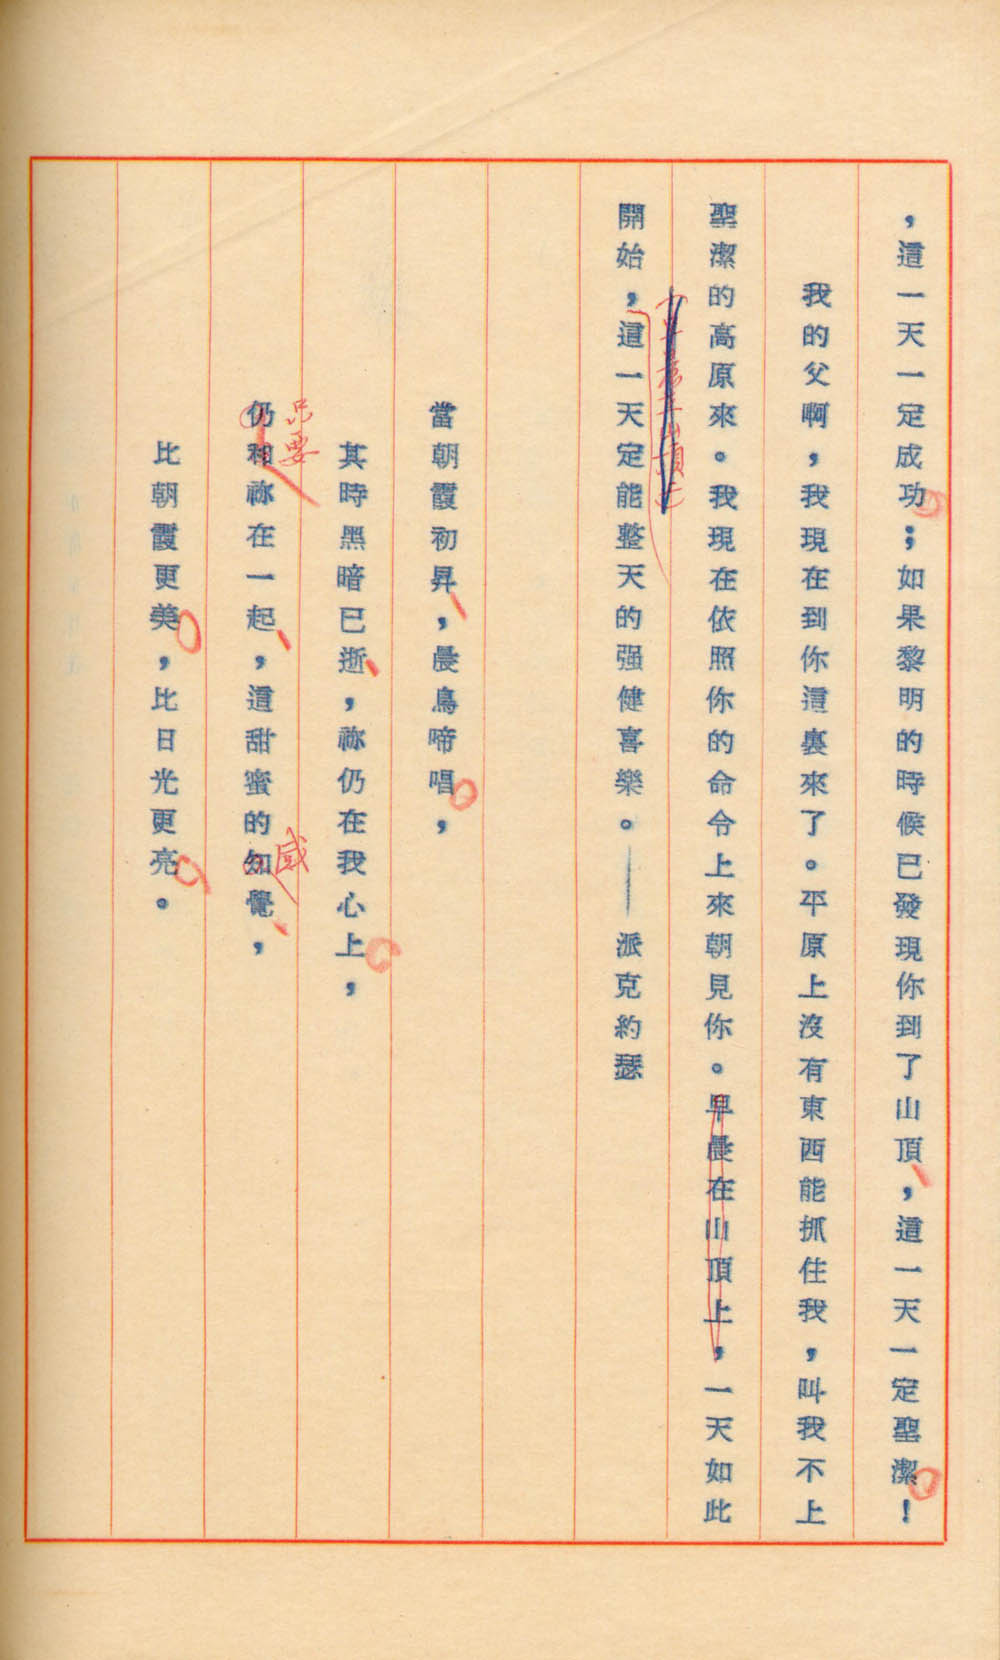 ，這一天一定成功；如果黎明的時候已發現你到了山頂，這一天一定聖潔！
我的父啊，我現在到你這裏來了。平原上沒有東西能抓住我，叫我不上
聖潔的高原來。我現在依照你的命令上來朝見你。早晨在山頂上，一天如此
開始，這一天定能整天的强健喜樂。——派克約瑟
當朝霞初昇，晨鳥啼唱，
其時黑暗已逝，祢仍在我心上，
只要
仍和祢在一起，這甜蜜的知覺，
感
比朝霞更美，比日光更亮。